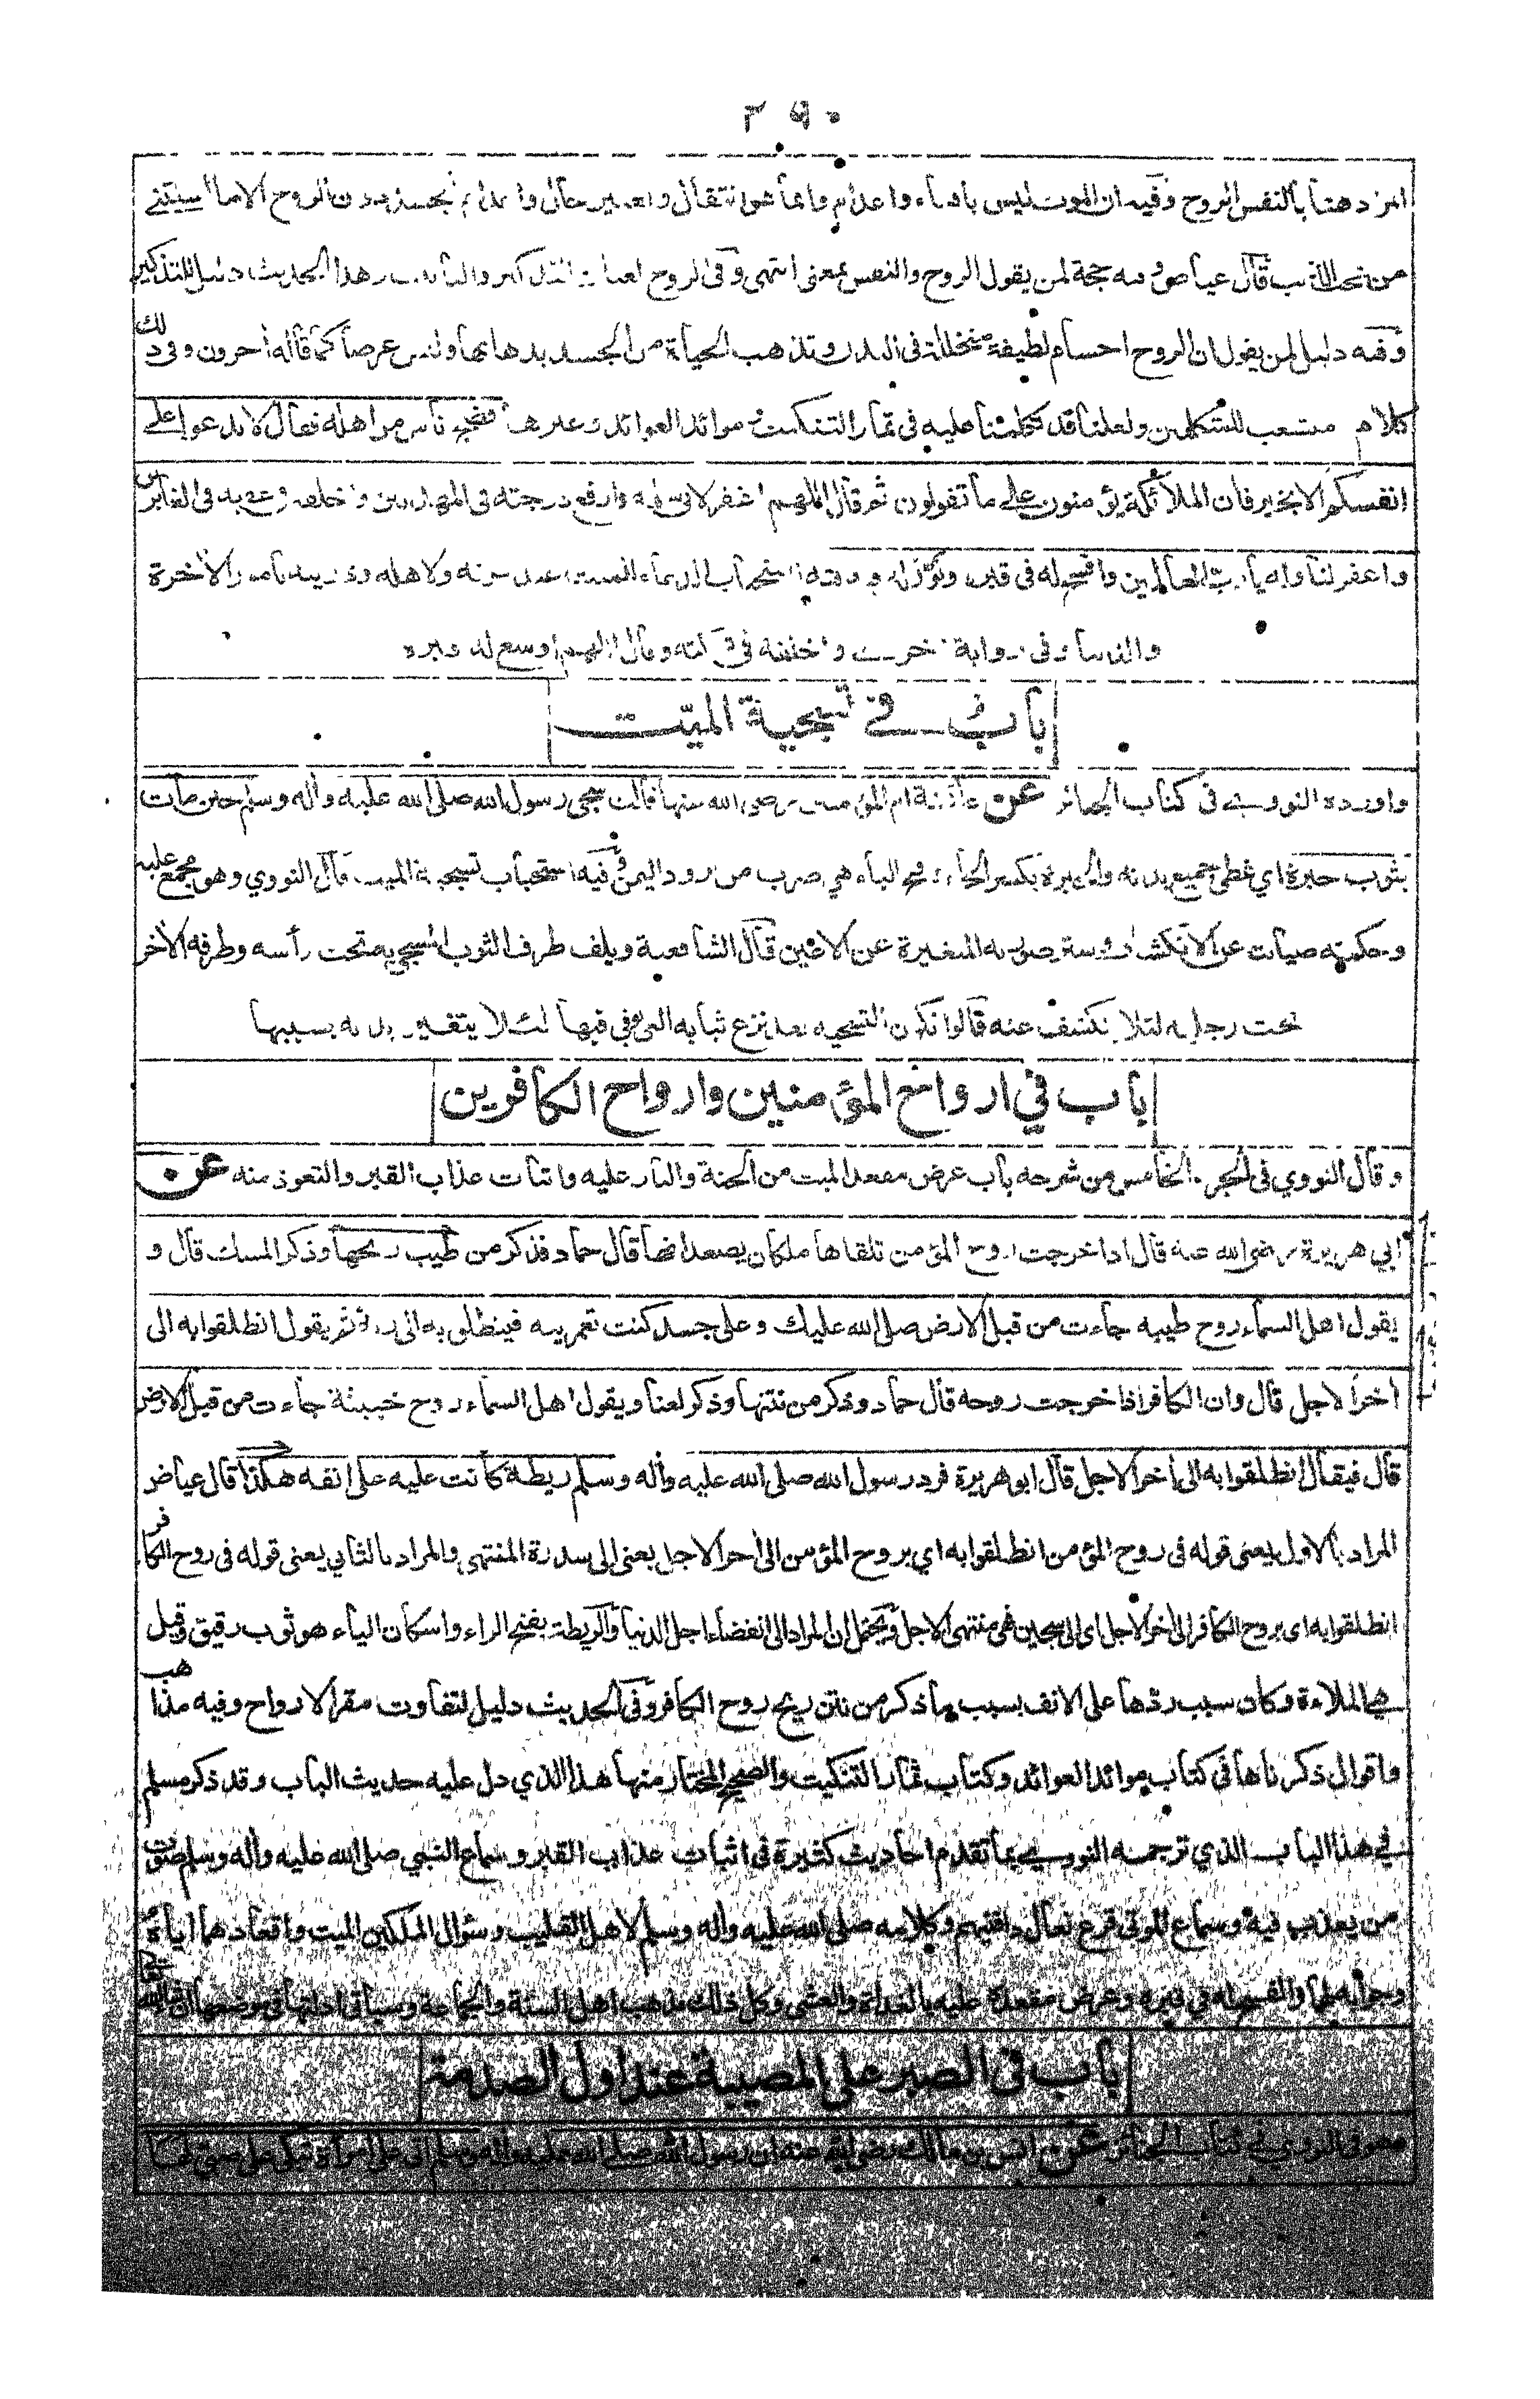 المراد هنا بالنفس الروح وفيه ان الموت ليس بافناء واعدام وانما هو انتقال وتغير حال واعدام للجسد دون الروح الا ما استثني
من عجب الذنب قال عياض وفيه حجة لمن يقول الروح والنفس بمعنى انتهى وفي الروح لغتان التذكير والتأنيث وهذا الحديث دليل للتذكير
وفيه دليل لمن يقول ان الروح اجسام لطيفة متخللة في البدن وتذهب الحياة من الجسد بذهابها وليس عرضا كما قاله آخرون وفي ذلك
كلام متشعب للمتكلمين ولعلنا قد تكلمنا عليه في ثمار التنكيت وموائد العوائد وغيرها فضج ناس من اهله فقال لا تدعوا على
انفسكم الا بخير فان الملائكة يؤمنون على ما تقولون ثم قال اللهم اغفر لابي سلمة وارفع درجته في المهديين واخلفه في عقبه في الغابرين
واغفر لنا وله يا رب العالمين وافسح له في قبره ونور له فيه وفيه استحباب الدعاء للميت عند موته ولاهله وذريته بامور الآخرة
والدنيا وفي رواية اخرى واخلفه في تركته وقال اللهم اوسع له في قبره
باب في تسجية الميت
واورده النووي في كتاب الجنائز عن عائشة ام المؤمنين رضي الله عنها قالت سجي رسول الله صلى الله عليه وآله وسلم حين مات
بثوب حبرة اي غطى جميع بدنه والحبرة بكسر الحاء وفتح الباء هي ضرب من برود اليمن وفيه استحباب تسجية الميت قال النووي وهو مجمع عليه
وحكمته صيانته عن الانكشاف وستر صورته المتغيرة عن الاعين قال الشافعية ويلف طرف الثوب المسجى به تحت رأسه وطرفه الآخر
تحت رجليه لئلا ينكشف عنه قالوا تكون التسجية بعد نزع ثيابه التي توفي فيها لئلا يتغير بدنه بسببها
باب في ارواح المؤمنين وارواح الكافرين
وقال النووي في الجزء الخامس من شرحه باب عرض مقعد الميت من الجنة والنار عليه واثبات عذاب القبر والتعوذ منه عن
ابي هريرة رضي الله عنه قال اذا خرجت روح المؤمن تلقاها ملكان يصعدانها قال حماد فذكر من طيب ريحها وذكر المسك قال و
يقول اهل السماء روح طيبة جاءت من قبل الارض صلى الله عليك وعلى جسد كنت تعمرينه فينطلق به الى ربه ثم يقول انطلقوا به الى
آخر الاجل قال وان الكافر اذا خرجت روحه قال حماد وذكر من نتنها وذكر لعنا ويقول اهل السماء روح خبيثة جاءت من قبل الارض
قال فيقال انطلقوا به الى آخر الاجل قال ابو هريرة فرد رسول الله صلى الله عليه وآله وسلم ريطة كانت عليه على انفه هكذا قال عياض
المراد بالاول يعني قوله في روح المؤمن انطلقوا به اي بروح المؤمن الى آخر الاجل يعني الى سدرة المنتهى والمراد بالثاني يعني قوله في روح الكافر
انطلقوا به اي بروح الكافر الى آخر الاجل اي الى سجين فهي منتهى الاجل ويحتمل ان المراد الى انقضاء اجل الدنيا والريطة بفتح الراء واسكان الياء هو ثوب رقيق وقيل
هي الملاءة وكان سبب ردها على الانف بسبب ما ذكر من نتن ريح روح الكافر وفي الحديث دليل لتفاوت مقر الارواح وفيه مذاهب
واقوال ذكرناها في كتاب موائد العوائد وكتاب ثمار التنكيت والصحيح المختار منها هذا الذي دل عليه حديث الباب وقد ذكر مسلم
في هذا الباب الذي ترجمه النووي بما تقدم احاديث كثيرة في اثبات عذاب القبر وسماع النبي صلى الله عليه وآله وسلم صوت
من يعذب فيه وسماع الموتى قرع نعال دافنيهم وكلامه صلى الله عليه وآله وسلم لاهل القليب وسؤال الملكين الميت واقعادهما اياه
وجوابه لهما والفسح له في قبره وعرض مقعده عليه بالغداة والعشي وكل ذلك مذهب اهل السنة والجماعة وسيأتي ادلتها في موضعها ان شاء الله تعالى
باب في الصبر على المصيبة عند اول الصدمة
وهو في النووي في كتاب الجنائز عن انس بن مالك رضي الله عنه ان رسول الله صلى الله عليه وآله وسلم اتى على امرأة تبكي على صبي لها